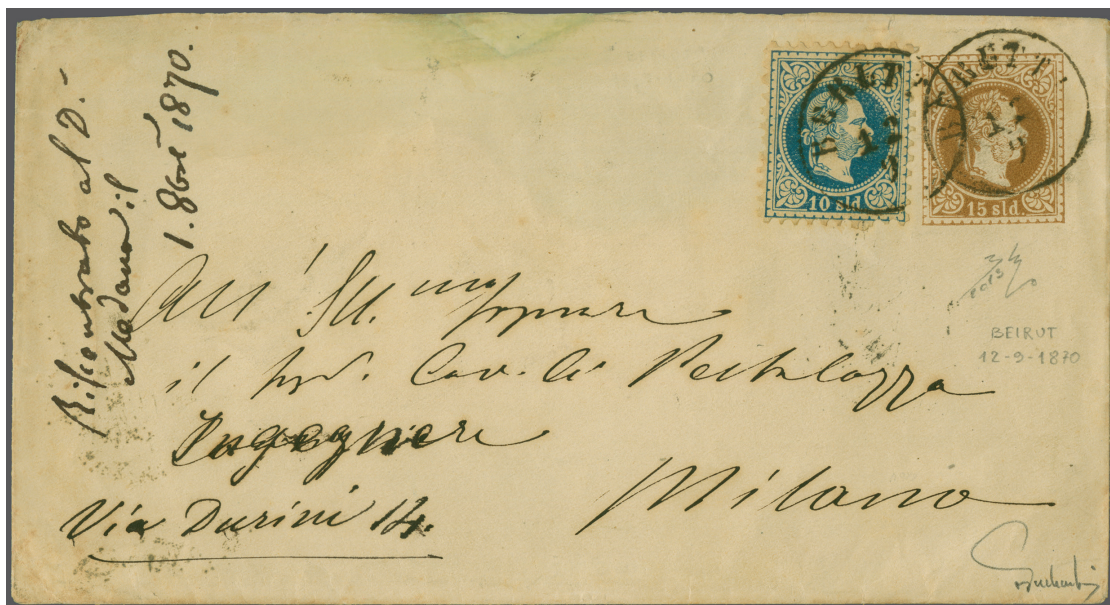 Riscontrato al D.-
Madama il
1. 8bre 1870.
BERUTTI
12
9
10 sld.
15 sld.
12
9
BEIRUT
12-9-1870
All' Ill.mo Signore
il Sigr. Cav. Pestalozza
Ingegnere
Milano
Via Durini 14.